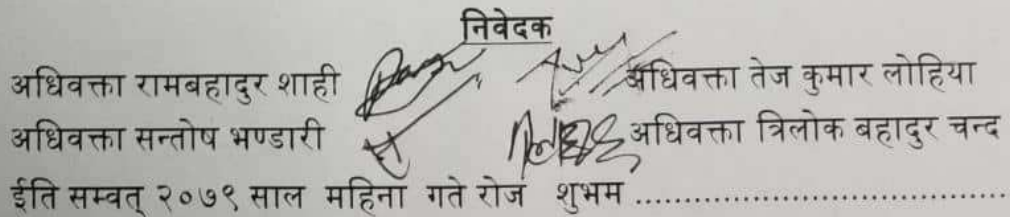 निवेदक
अधिवक्ता रामबहादुर शाही अधिवक्ता तेज कुमार लोहिया
अधिवक्ता सन्तोष भण्डारी अधिवक्ता त्रिलोक बहादुर चन्द
ईति सम्वत् २०७९ साल महिना गते रोज शुभम ....................................